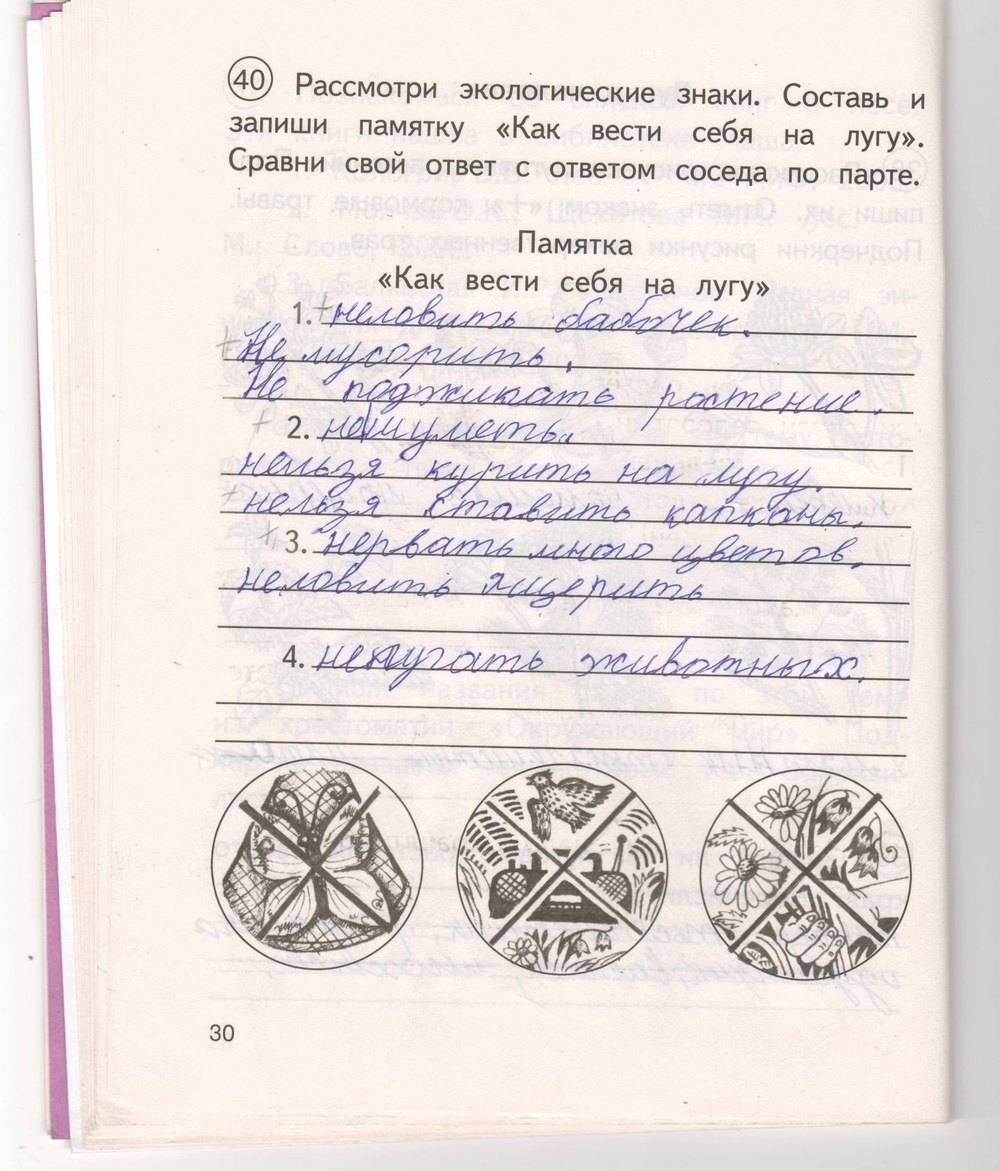 40 Рассмотри экологические знаки. Составь и
запиши памятку «Как вести себя на лугу».
Сравни свой ответ с ответом соседа по парте.
Памятка
«Как вести себя на лугу»
1. +неловить бабочек.
+Не мусорить.
Не поджикать ростение.
+ 2. не|шуметь.
нельзя курить на лугу.
+нельзя ставить капканы.
+ 3. нервать много цветов.
неловить ящерить
4. непугать животных.
30